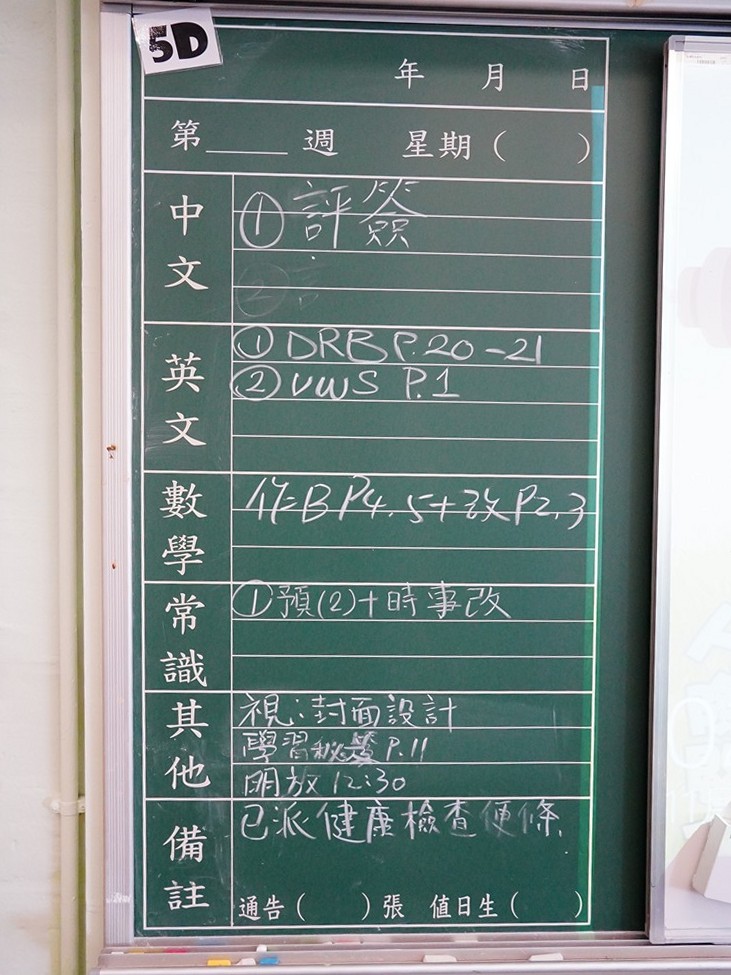 5D
年 月 日
第____週 星期( )
中文
① 評簽
②
英文
① DRB P.20-21
② VWS P.1
數學
作B P4.5+改P2,3
常識
① 預(2)+時事改
其他
視:封面設計
學習秘笈 P.11
明放 12:30
備註
已派健康檢查便條.
通告( )張 值日生( )